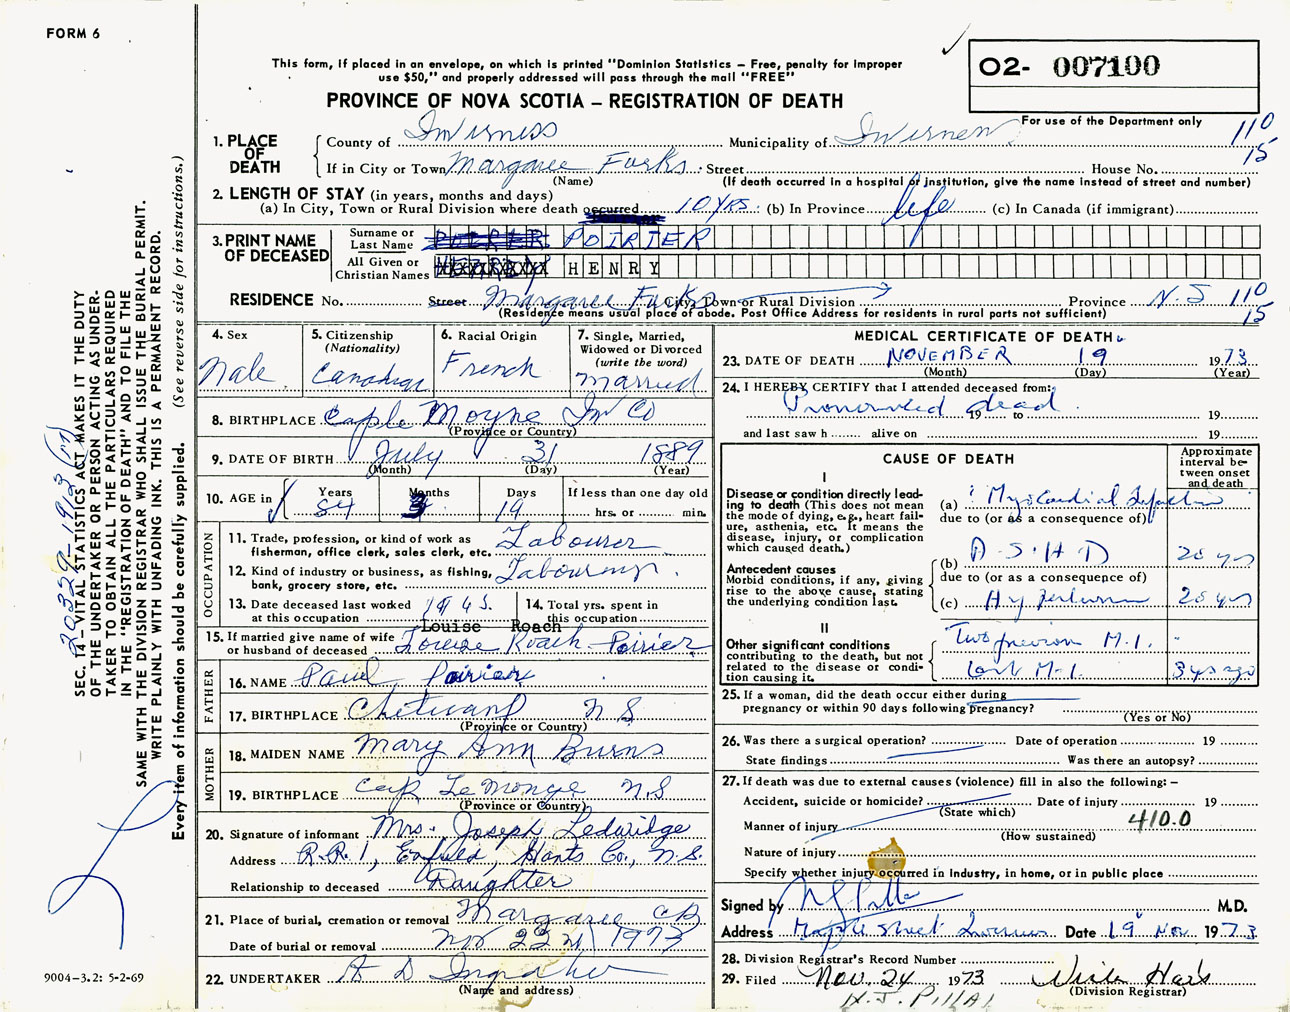 FORM 6
This form, if placed in an envelope, on which is printed "Dominion Statistics – Free, penalty for improper
use $50," and properly addressed will pass through the mail "FREE"
02- 007100
For use of the Department only
PROVINCE OF NOVA SCOTIA – REGISTRATION OF DEATH
110
15
1. PLACE OF DEATH
County of Inverness Municipality of Inverness
If in City or Town Margaree Forks Street House No.
(Name) (If death occurred in a hospital or institution, give the name instead of street and number)
2. LENGTH OF STAY (in years, months and days)
(a) In City, Town or Rural Division where death occurred 10 YRS. (b) In Province life (c) In Canada (if immigrant)
3. PRINT NAME OF DECEASED
Surname or Last Name POIRIER
All Given or Christian Names HENRY
RESIDENCE No. Street Margaree Forks City, Town or Rural Division Province N.S 110
15
(Residence means usual place of abode. Post Office Address for residents in rural parts not sufficient)
4. Sex
Male
5. Citizenship
(Nationality)
Canadian
6. Racial Origin
French
7. Single, Married,
Widowed or Divorced
(write the word)
Married
8. BIRTHPLACE Moyne In Co
(Province or Country)
9. DATE OF BIRTH July 31 1889
(Month) (Day) (Year)
10. AGE in Years Months Days If less than one day old
84 3 19 hrs. or min.
OCCUPATION
11. Trade, profession, or kind of work as
fisherman, office clerk, sales clerk, etc. Labourer
12. Kind of industry or business, as fishing,
bank, grocery store, etc. Labouring.
13. Date deceased last worked
at this occupation 1945.
14. Total yrs. spent in
this occupation
Louise Roach
15. If married give name of wife
or husband of deceased Louise Roach - Poirier
FATHER
16. NAME Paul Poirier
17. BIRTHPLACE Cheticamp N S
(Province or Country)
MOTHER
18. MAIDEN NAME Mary Ann Burns
19. BIRTHPLACE Cap Le Monye N.S
(Province or Country)
20. Signature of informant Mrs. Joseph Ledwidge
Address R.R.1, Enfield, Hants Co., N.S.
Relationship to deceased Daughter
21. Place of burial, cremation or removal Margaree CB
Date of burial or removal Nov 22 nd 1973
22. UNDERTAKER A D
(Name and address)
MEDICAL CERTIFICATE OF DEATH
23. DATE OF DEATH NOVEMBER 19 1973
(Month) (Day) (Year)
24. I HEREBY CERTIFY that I attended deceased from:
Pronounced dead 19 to 19
and last saw h alive on 19
CAUSE OF DEATH
Approximate
interval be-
tween onset
and death
I
Disease or condition directly lead-
ing to death (This does not mean
the mode of dying, e.g., heart fail-
ure, asthenia, etc. It means the
disease, injury, or complication
which caused death.)
(a) ? Myocardial Infarction
due to (or as a consequence of)
(b) A.S.H.D 20 yrs
Antecedent causes
Morbid conditions, if any, giving
rise to the above cause, stating
the underlying condition last.
due to (or as a consequence of)
(c) Hypertension 20 yrs
II
Other significant conditions
contributing to the death, but not
related to the disease or condi-
tion causing it.
Two previous M.I. "
Last M.I. 3 yrs ago
25. If a woman, did the death occur either during
pregnancy or within 90 days following pregnancy?
(Yes or No)
26. Was there a surgical operation? Date of operation 19
State findings Was there an autopsy?
27. If death was due to external causes (violence) fill in also the following: –
Accident, suicide or homicide? Date of injury 19
(State which)
Manner of injury 410.0
(How sustained)
Nature of injury
Specify whether injury occurred in Industry, in home, or in public place
Signed by M.D.
Address Maple Street Inverness Date 19 Nov 1973
28. Division Registrar's Record Number
29. Filed Nov. 24 1973
(Division Registrar)
N.J. PILLAI
SEC. 14–VITAL STATISTICS ACT MAKES IT THE DUTY
OF THE UNDERTAKER OR PERSON ACTING AS UNDER-
TAKER TO OBTAIN ALL THE PARTICULARS REQUIRED
IN THE "REGISTRATION OF DEATH" AND TO FILE THE
SAME WITH THE DIVISION REGISTRAR WHO SHALL ISSUE THE BURIAL PERMIT.
WRITE PLAINLY WITH UNFADING INK. THIS IS A PERMANENT RECORD.
Every item of information should be carefully supplied. (See reverse side for instructions.)
9004–3.2: 5-2-69